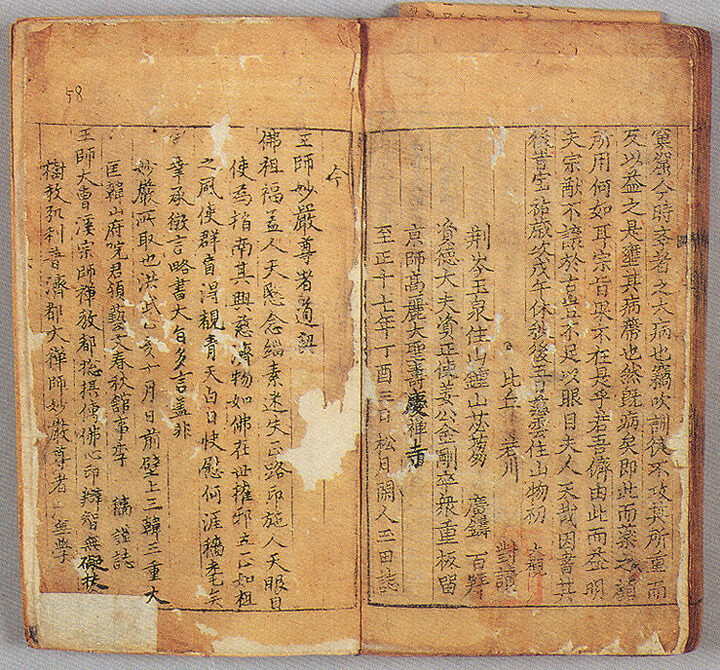 窠窟今時李者之大病也竊吹訓後不攻其所重而
反以益之是壅其病帶也然既病矣即此而藥之顧
所用何如耳宗旨眼不在是乎若吾儕由此而益明
夫宗猷不讓於古豈不足以眼目夫人天哉因書其
後昔宝祐歲次戊午休秋後五日慈雲住山物初 大觀
比丘 若川 對讀
荆岑玉泉住山鍾山苾蒭 廣鑄 百拜
資德大夫資正使姜公金剛卒衆重板留
京師萬麗大聖壽慶禪寺
至正十七年丁酉三日松月閑人玉田誌
58
今
王師妙嚴尊者道契
佛祖福盖人天愍念緇素迷失正路印施人天眼目
使爲指南其興慈濟物如佛在世摧邪立正如祖
之風使群盲淂覩青天白日快慰何涯穡老矣
幸承徵言略書大旨多言盖非
妙嚴所取也洪武乙亥十月日前壁上三韓三重大
匡韓山府院君領藝文春秋館事李 穡謹誌
王師大曹溪宗師禪教都捴攝傳佛心印辯智無礙扶
樹教弘利普濟都大禪師妙嚴尊者 無學